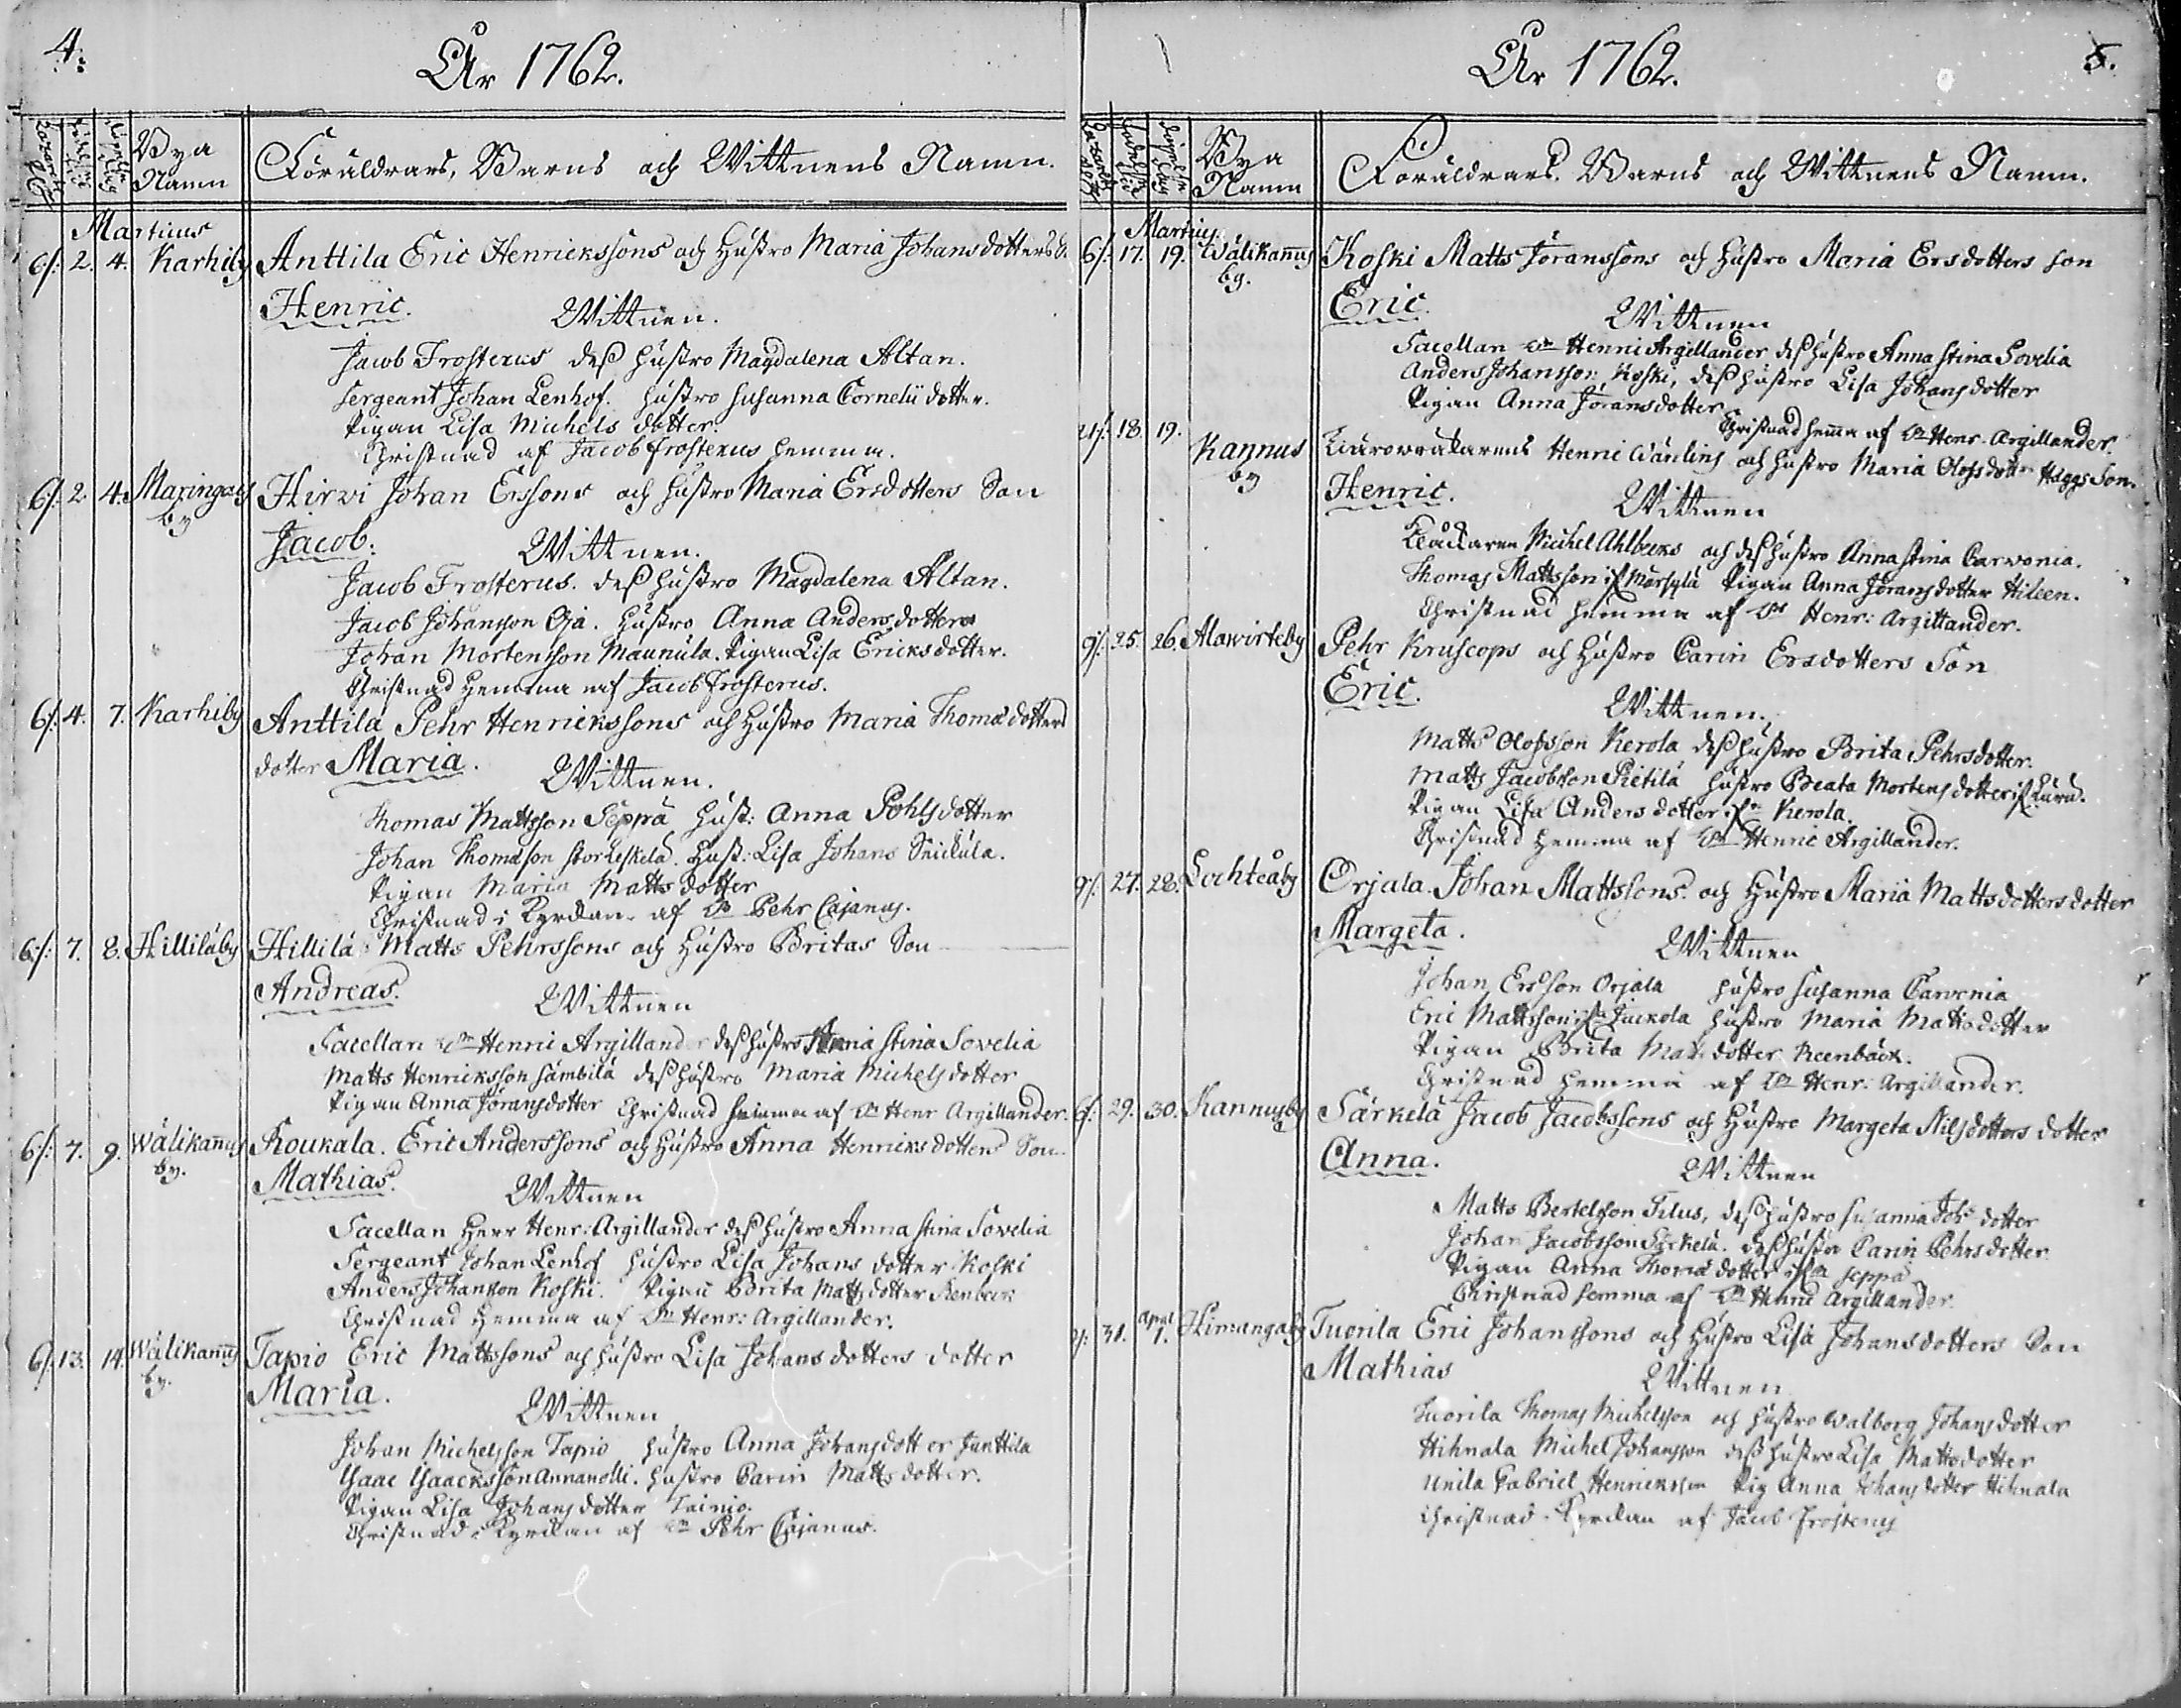 4.
År 1762.
Bya Namn
Föräldrars, Barns och Wittnens Namn.
Martius
6/: 2. 4. Karhiby Anttila Eric Henrickssons och Hustro Maria Johansdotters S.
Henric. Wittnen.
Jacob Frosterus dess hustro Magdalena Altan.
Sergeant Johan Lenhof. hustro Susanna Cornelii dotter.
Pigan Lisa Michels dotter.
Christnad af Jacob Frosterus hemma.
6/: 2. 4. Maringais by Hirwi Johan Erssons och hustro Maria Ersdotters Son
Jacob: Wittnen.
Jacob Frosterus. dess hustro Magdalena Altan.
Jacob Johansson Oja. hustro Anna Andersdotter
Johan Mortensson Maunula. Pigan Lisa Ericksdotter.
Christnad hemma af Jacob Frosterus.
6/: 4. 7. Karhiby Anttila Pehr Henrickssons och Hustro Maria Thomædotters
dotter Maria. Wittnen.
Thomas Mattsson Seppä hust: Anna Pohlsdotter
Johan Thomæson Storkeskela. Hust: Lisa Johans
Pigan Maria Mattsdotter
Christnad i Kyrckan af Dn Pehr Cajanus.
6/: 7. 8. Hilliläby Hillilä Matts Pehrssons och Hustro Britas Son
Andreas. Wittnen
Sacellan Dn Henric Argillander dess hustro Anna Stina Sovelia
Matts Henricksson Sämbilä dess hustro Maria Michelsdotter
Pigan Anna Joransdotter Christnad hemma af Dn Henr Argillander.
6/: 7. 9. Wälikannus by. Roukala. Eric Anderssons och Hustro Anna Henricksdotters Son.
Mathias. Wittnen
Sacellan Herr Henr: Argillander dess hustro Anna Stina Sovelia
Sergeant Johan Lenhof hustro Lisa Johans dotter Koski
Anders Johansson Koski. Pigan Brita Mattsdotter
Christnad hemma af Dn Henr: Argillander.
6/: 13. 14. Wälikannus by. Tapio Eric Mattssons och hustro Lisa Johansdotters dotter
Maria. Wittnen
Johan Michelsson Tapio hustro Anna Johansdotter Junttila
Isaac Isaacksson Annanolli. hustro Carin Mattsdotter.
Pigan Lisa Johansdotter Tainio.
Christnad i Kyrckan af Dn Pehr Cajanus.
5.
År 1762.
Bya Namn
Föräldrars. Barns och Wittnens Namn.
Martius.
6/: 17. 19. Wälikannus by. Koski Matts Joranssons och hustro Maria Ersdotters son
Eric. Wittnen
Sacellan Dn Henric Argillander dess hustro Anna Stina Sovelia
Anders Johansson Koski, dess hustro Lisa Johansdotter
Pigan Anna Joransdotter
Christnad hemma af Dn Henr. Argillander.
18. 19. Kannus by Henric och hustro Maria Olofsdotter Haggs Son.
Henric. Wittnen
Klåckaren Michel Ahlbecks och dess hustro Anna Stina Carvonia.
Thomas Mattsson Pigan Anna Joransdotter Hileen.
Christnad hemma af Dn Henr: Argillander.
9/: 25. 26. Alawirteby Pehr Kruscops och Hustro Carin Ersdotters Son
Eric. Wittnen.
Matts Olofsson Kerola dess hustro Brita Pehrsdotter.
Matts Jacobsson Pietilä hustro Beata Mortensdotter
Pigan Lisa Andersdotter Kerola.
Christnad hemma af Dn Henric Argillander.
9/: 27. 28. Lochteåby Orjala. Johan Mattssons och Hustro Maria Mattsdotters dotter
Margeta. Wittnen
Johan Ersson Orjala hustro Susanna Carvonia
Eric Mattsson Juckola hustro Maria Mattsdotter
Pigan Brita Matsdotter Keenbäck.
Christnad hemma af Dn Henr: Argillander.
6/: 29. 30. Kannusby Särkelä Jacob Jacobssons och Hustro Margeta Nilsdotters dotter
Anna. Wittnen
Matts Bertelsson Tilus, dess hustro Susanna Johs dotter
Johan Jacobsson Särkelä. dess hustro Carin Pehrsdotter
Pigan Anna Thomædotter Seppä
Christnad hemma af Dn Henric Argillander.
31. April 1. Himangaby Tuorila Eric Johanssons och Hustro Lisa Johansdotters Son
Mathias Wittnen
Tuorila Thomas Michelsson och hustro Walborg Johansdotter
Hihnala Michel Johansson dess hustro Lisa Mattsdotter
Unila Gabriel Henricksson Pig Anna Johansdotter Hihnala
Christnad i Kyrckan af Jacob Frosterus